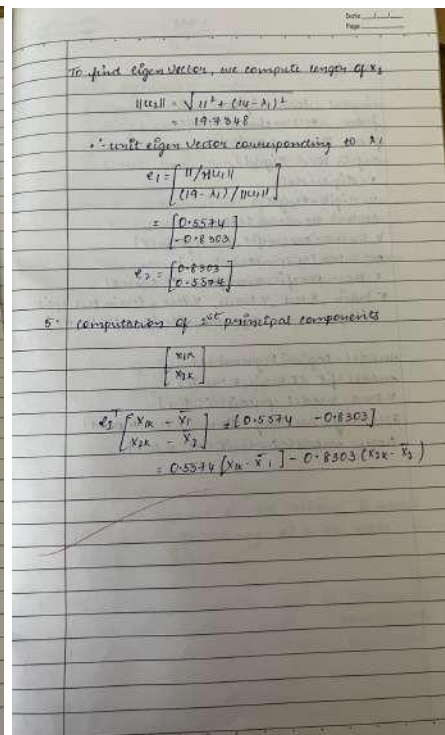 Date
Page
To find eigen vector, we compute length of x₁
||u₁|| = √11² + (14 - λ₁)²
= 19.7348
∴ unit eigen vector corresponding to λ₁
e₁ = [11/||u₁||
(14 - λ₁)/||u₁||]
= [0.5574
-0.8303]
e₂ = [0.8303
0.5574]
5. computation of 1st principal components
[x₁ₖ
x₂ₖ]
e₁ᵀ [x₁ₖ - x̄₁
x₂ₖ - x̄₂] = [0.5574 -0.8303]
= 0.5574 [x₁ₖ - x̄₁] - 0.8303 (x₂ₖ - x̄₂)